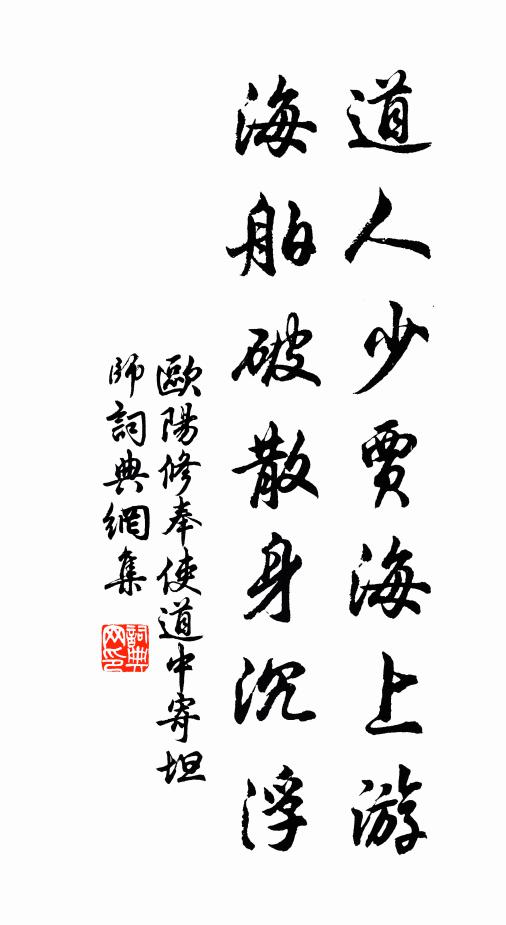 道人少賈海上游
海舶破散身沉浮
歐陽修奉使道中寄坦
師詞典網集
詞典網印